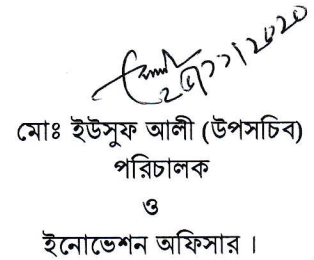 মোঃ ইউসুফ আলী (উপসচিব)
পরিচালক
ও
ইনোভেশন অফিসার ।